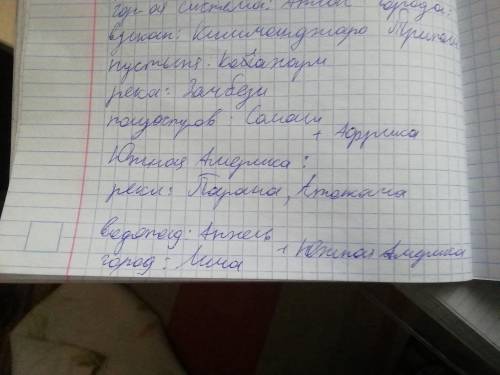 горная система: Атлас города:
вулкан: Килиманджаро Триполи
пустыня: Калахари
река: Замбези
полуостров: Сомали
+ Африка
Южная Америка:
реки: Парана, Атакама
водопад: Анхель
город: Лима
+ Южная Америка